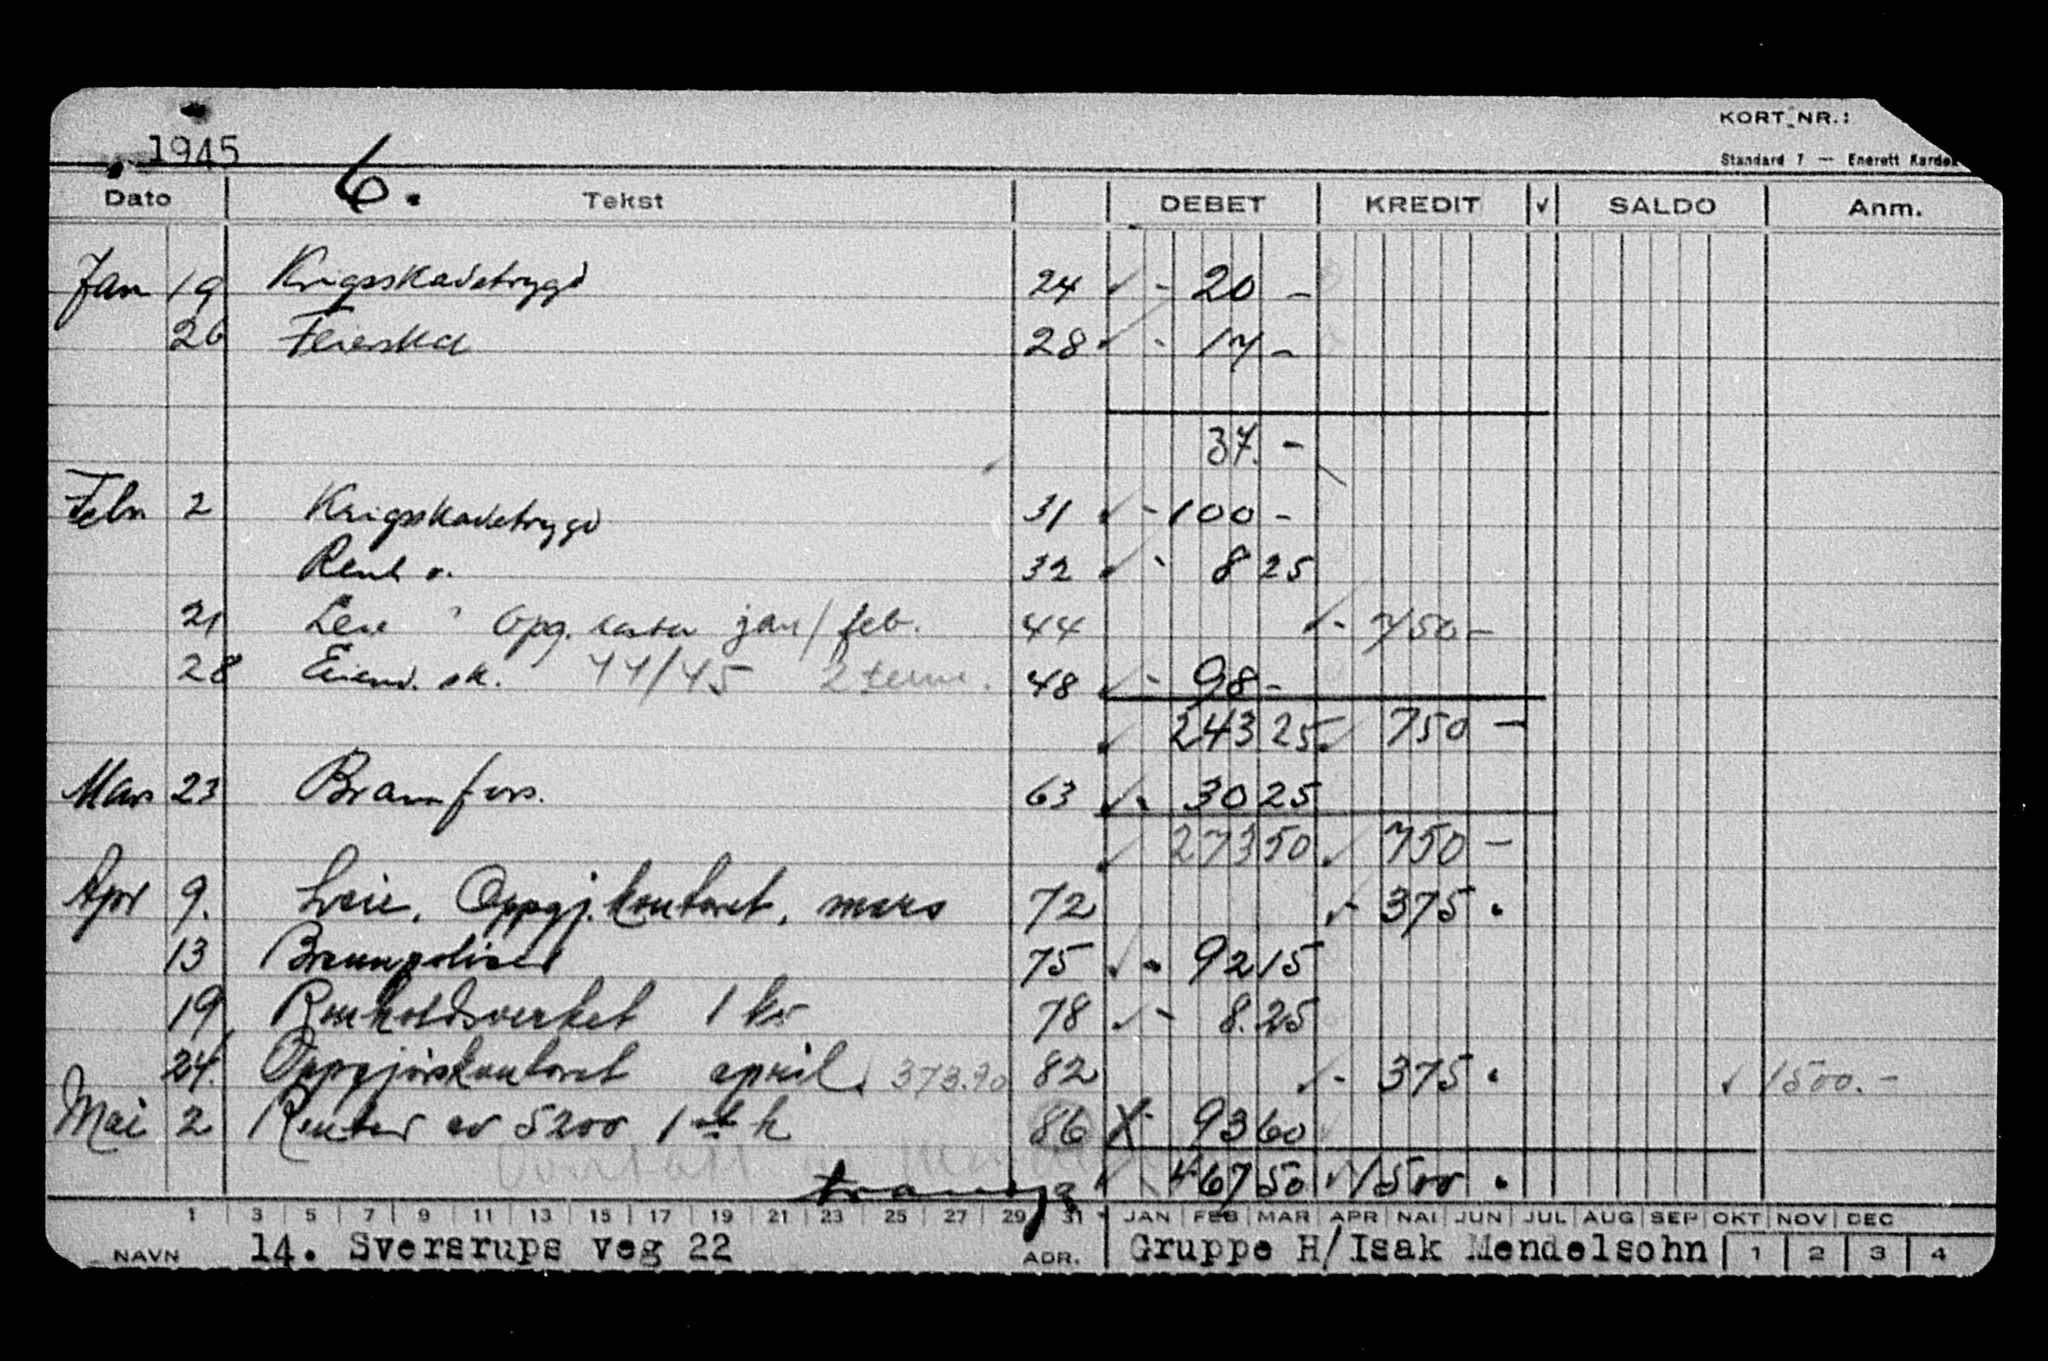 KORT NR.:
1945 6. Standard 7 — Enerett Kardex
Dato Tekst DEBET KREDIT √ SALDO Anm.
Jan 19 Krigsskadetrygd 24 ✓ - 20 -
26 Feiersk 28 ✓ - 17 -
37. -
Febr 2 Krigsskadetrygd 31 ✓ - 100 -
Renh. v. 32 ✓ - 8 25
21 Leie Opg. jan/feb. 44 ✓ - 750 -
28 Eiend. sk. 44/45 2 termin. 48 ✓ - 98 -
✓ 243 25 ✓ 750 -
Mars 23 Brannfors. 63 ✓ - 30 25
✓ 273 50 ✓ 750 -
Apr 9. Leie, Oppgj.kontoret, mars 72 ✓ - 375 .
13 Brannpoliser 75 ✓ - 92 15
19 Renholdsverket 1 kv 78 ✓ - 8.25
24. Oppgjørskontoret april. 373.90 82 ✓ - 375 . ✓ 1500.-
Mai 2 Renter av 5200 1ste h 86 X - 93 60
transp ✓ 467 50 ✓ 1500 .
1 3 5 7 9 11 13 15 17 19 21 23 25 27 29 31 JAN FEB MAR APR MAI JUN JUL AUG SEP OKT NOV DEC
NAVN 14. Sversrups veg 22 ADR. Gruppe H/Isak Mendelsohn 1 2 3 4